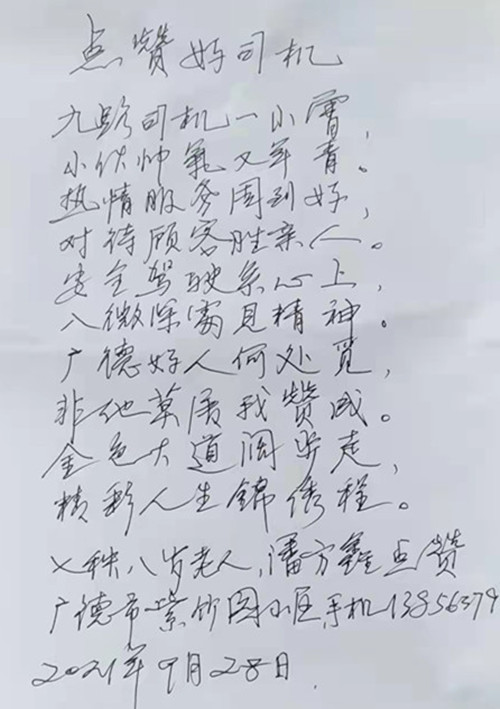 点赞好司机
九路司机一小雷，
小伙帅氣又年青。
热情服务周到好，
对待顾客胜亲人。
安全驾驶系心上，
八微深處見精神。
广德好人何处覓，
非他莫属我赞成。
金色大道阔步走，
精彩人生錦绣程。
乂秩八岁老人，潘方鑫点赞
广德市紫竹园小区，手机13856379
2021年9月28日．